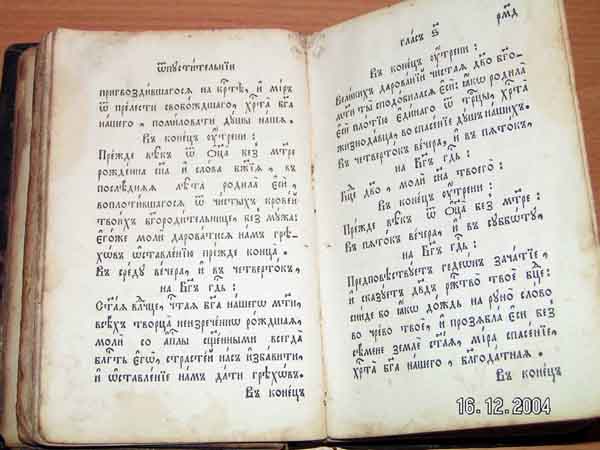 ѿпꙋсти́тельнїи
пригвозди́вшагосѧ на крⷭ҇тѣ̀, и҆ мі́ръ
ѿ пре́лести свобо́ждшаго, хрⷭ҇та̀ бг҃а
на́шего, поми́ловати дꙋ́шы на́шѧ.
Въ коне́цъ ᲂу҆́трени:
Пре́жде вѣ̑къ ѿ ѻ҆ц҃а̀ без̾ мт҃ре
рожде́нна сн҃а и҆ сло́ва бж҃їѧ, въ
послѣ́днѧѧ лѣ̑та родила̀ є҆сѝ,
воплоти́вшагосѧ ѿ чи́стыхъ крове́й
твои́хъ бг҃оро́дительнице, без̾ мꙋ́жа:
є҆го́же молѝ дарова́тисѧ на́мъ грѣ-
хѡ́въ ѡ҆ставле́нїю пре́жде конца̀.
Въ сре́дꙋ ве́чера, и҆ въ четверто́къ,
на Бг҃ъ гдⷭ҇ь:
Ст҃а́ѧ влⷣчце, чⷭ҇таѧ бг҃а на́шегѡ мт҃и,
всѣ́хъ творца̀ неизрече́ннѡ ро́ждшаѧ,
молѝ со а҆пⷭ҇лы сщ҃е́нными всегда̀
бл҃гть є҆гѡ̀, страсте́й на́съ и҆зба́вити,
и҆ ѡ҆ставле́нїе на́мъ да́ти грѣхѡ́въ.
Въ коне́цъ
гла́съ ѕ҃
рм҃д
Въ коне́цъ ᲂу҆́трени:
Вели́кихъ дарова́нїй чи́стаѧ дв҃о бг҃о-
мт҃и ты̀ сподо́биласѧ є҆сѝ: ꙗ҆́кѡ родила̀
є҆сѝ пло́тїю є҆ди́наго ѿ трⷪ҇цы, хрⷭ҇та̀
жизнода́вца, во спасе́нїе дꙋ́шъ на́шихъ.
Въ четверто́къ ве́чера, и҆ въ пѧто́къ,
на Бг҃ъ гдⷭ҇ь:
Бц҃е дв҃о, молѝ сн҃а твоего̀:
Въ коне́цъ ᲂу҆́трени:
Пре́жде вѣ̑къ ѿ ѻ҆ц҃а̀ без̾ мт҃ре:
Въ пѧто́къ ве́чера, и҆ въ сꙋббѡ́тꙋ,
на Бг҃ъ гдⷭ҇ь:
Предповѣ́ствꙋетъ гедеѡ́нъ зача́тїе,
и҆ сказꙋ́етъ дв҃дъ ржⷭ҇тво̀ твоѐ бц҃е:
сни́де бо ꙗ҆́кѡ до́ждь на рꙋно̀ сло́во
во чре́во твоѐ, и҆ прозѧ́бла є҆сѝ без̾
сѣ́мене землѐ ст҃а́ѧ, мі́ра спасе́нїе,
хрⷭ҇та̀ бг҃а на́шего, блг҃ода́тнаѧ.
Въ коне́цъ
16.12.2004